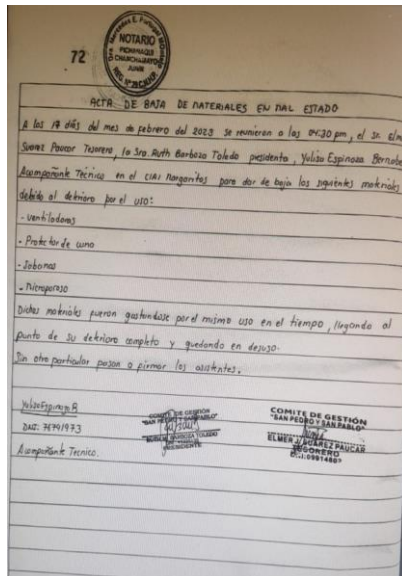 72
NOTARIO
PICHANAQUI
CHANCHAMAYO
JUNIN
ACTA DE BAJA DE MATERIALES EN MAL ESTADO
A los 17 días del mes de febrero del 2023 se reunieron a las 04:30 pm, el sr. Elm
Suarez Paucar Tesorero, la Sra. Ruth Barboza Toledo presidenta, Yulisa Espinoza Bernabe
Acompañante Técnico en el CIAI Margaritas para dar de baja los siguientes materiales
debido al deterioro por el uso:
- ventiladores
- Protector de cuna
- Sabanas
- Microporoso
Dichos materiales fueron gastandose por el mismo uso en el tiempo, llegando al
punto de su deterioro completo y quedando en desuso.
Sin otro particular pasan a firmar los asistentes.
Yulisa Espinoza B
DNI: 75791973
Acompañante Tecnico.
COMITÉ DE GESTIÓN
"SAN PEDRO Y SAN PABLO"
BARBOZA TOLEDO
PRESIDENTE
COMITE DE GESTIÓN
"SAN PEDRO Y SAN PABLO"
ELMER J. SUAREZ PAUCAR
TESORERO